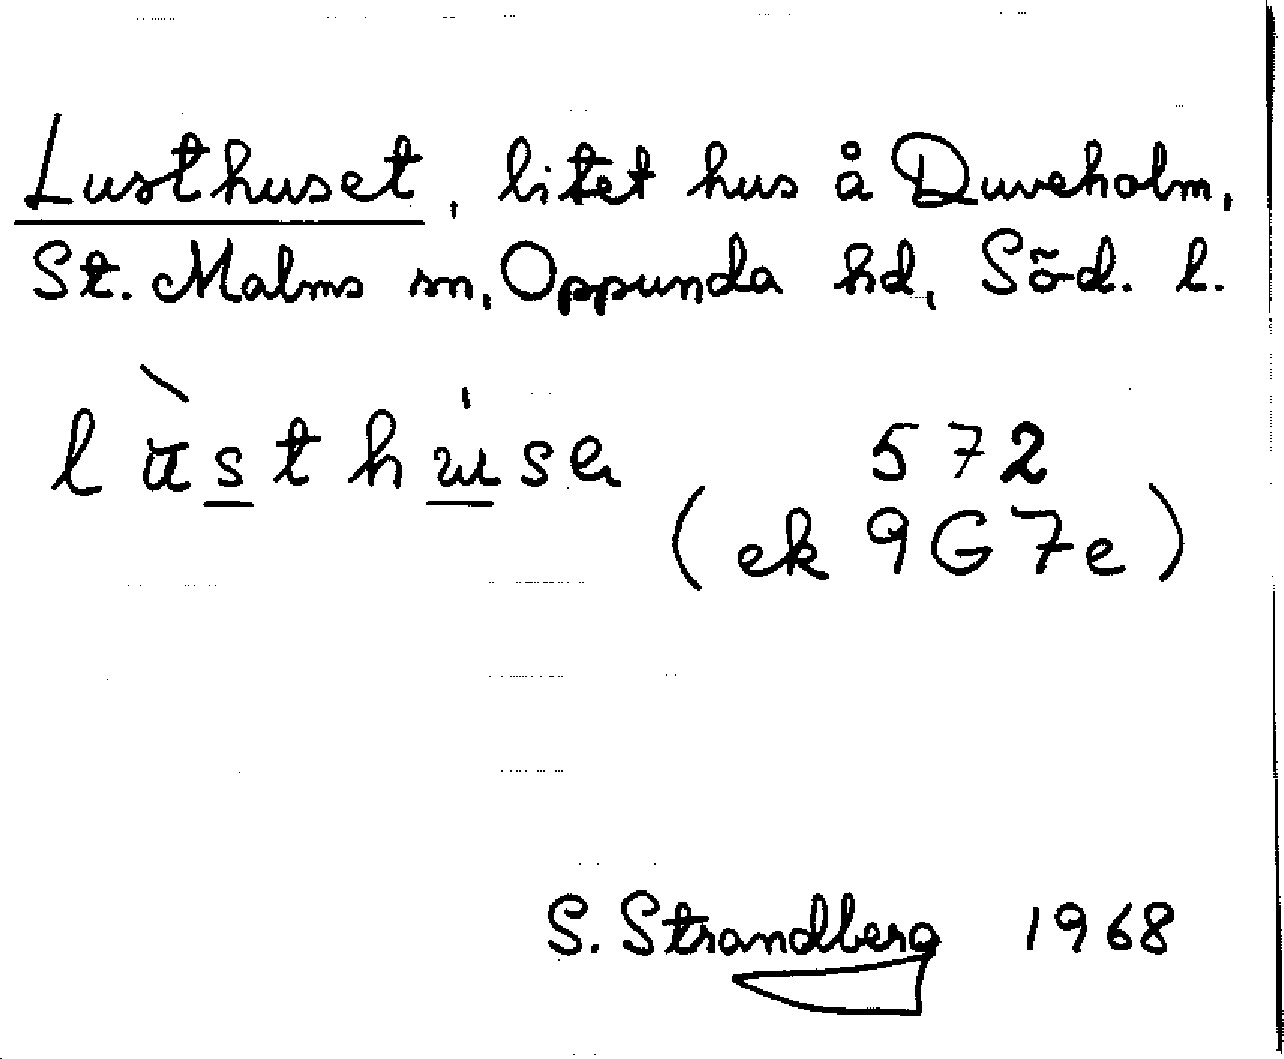 Lusthuset, litet hus å Duveholm,
St. Malms sn, Oppunda hd, Söd. l.
572
(ek 9G7e)
S. Strandberg 1968